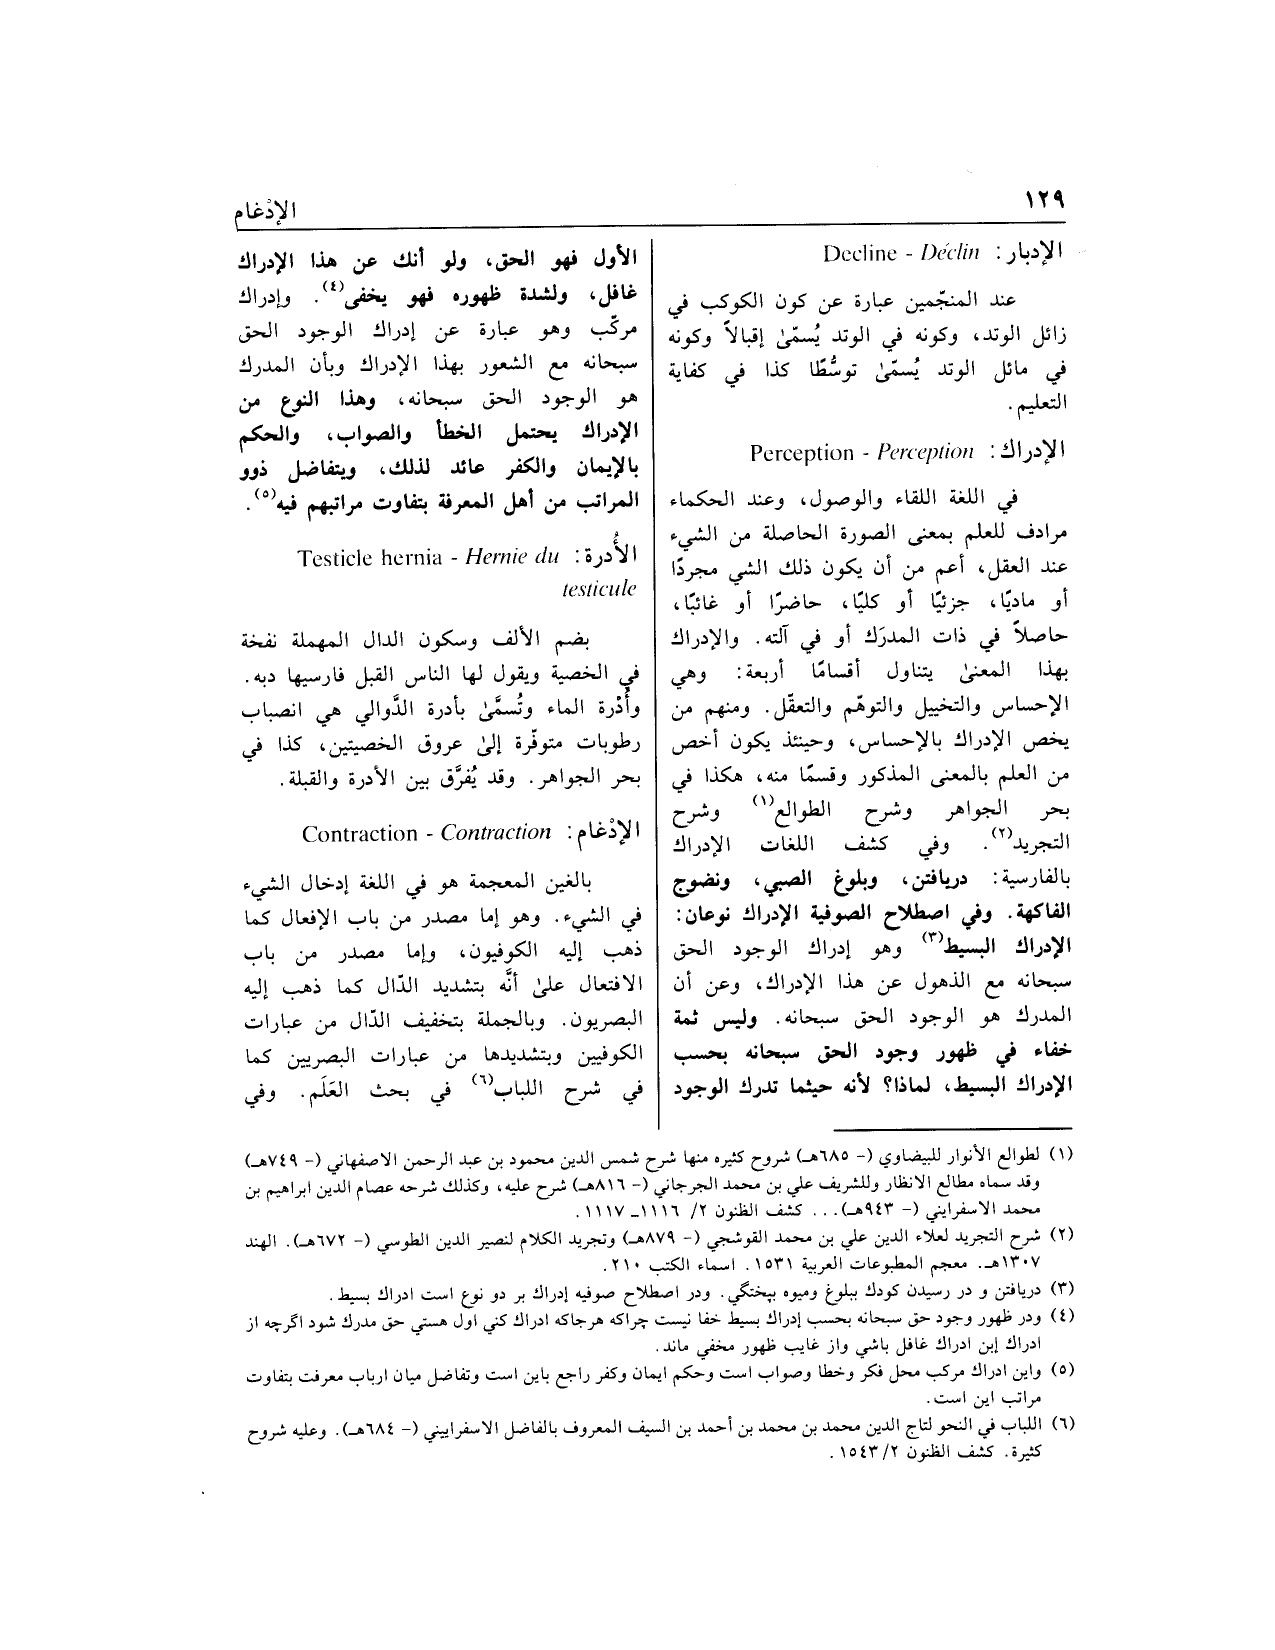 ١٢٩
الإدْغام
الإدبار: Decline - Déclin
عند المنجّمين عبارة عن كون الكوكب في
زائل الوتد، وكونه في الوتد يُسمّىٰ إقبالاً وكونه
في مائل الوتد يُسمّىٰ توسُّطًا كذا في كفاية
التعليم.
الإدراك: Perception - Perception
في اللغة اللقاء والوصول، وعند الحكماء
مرادف للعلم بمعنى الصورة الحاصلة من الشيء
عند العقل، أعم من أن يكون ذلك الشي مجردًا
أو ماديًا، جزئيًا أو كليًا، حاضرًا أو غائبًا،
حاصلاً في ذات المدرَك أو في آلته. والإدراك
بهذا المعنىٰ يتناول أقسامًا أربعة: وهي
الإحساس والتخييل والتوهّم والتعقّل. ومنهم من
يخص الإدراك بالإحساس، وحينئذ يكون أخص
من العلم بالمعنى المذكور وقسمًا منه، هكذا في
بحر الجواهر وشرح الطوالع(١) وشرح
التجريد(٢). وفي كشف اللغات الإدراك
بالفارسية: دريافتن، وبلوغ الصبي، ونضوج
الفاكهة. وفي اصطلاح الصوفية الإدراك نوعان:
الإدراك البسيط(٣) وهو إدراك الوجود الحق
سبحانه مع الذهول عن هذا الإدراك، وعن أن
المدرك هو الوجود الحق سبحانه. وليس ثمة
خفاء في ظهور وجود الحق سبحانه بحسب
الإدراك البسيط، لماذا؟ لأنه حيثما تدرك الوجود
الأول فهو الحق، ولو أنك عن هذا الإدراك
غافل، ولشدة ظهوره فهو يخفى(٤). وإدراك
مركّب وهو عبارة عن إدراك الوجود الحق
سبحانه مع الشعور بهذا الإدراك وبأن المدرك
هو الوجود الحق سبحانه، وهذا النوع من
الإدراك يحتمل الخطأ والصواب، والحكم
بالإيمان والكفر عائد لذلك، ويتفاضل ذوو
المراتب من أهل المعرفة بتفاوت مراتبهم فيه(٥).
الأُدرة: Testicle hernia - Hernie du
testicule
بضم الألف وسكون الدال المهملة نفخة
في الخصية ويقول لها الناس القبل فارسيها دبه.
وأُدْرة الماء وتُسمَّىٰ بأدرة الدَّوالي هي انصباب
رطوبات متوفّرة إلىٰ عروق الخصيتين، كذا في
بحر الجواهر. وقد يُفرَّق بين الأدرة والقبلة.
الإدْغام: Contraction - Contraction
بالغين المعجمة هو في اللغة إدخال الشيء
في الشيء. وهو إما مصدر من باب الإفعال كما
ذهب إليه الكوفيون، وإما مصدر من باب
الافتعال علىٰ أنَّه بتشديد الدّال كما ذهب إليه
البصريون. وبالجملة بتخفيف الدّال من عبارات
الكوفيين وبتشديدها من عبارات البصريين كما
في شرح اللباب(٦) في بحث العَلَم. وفي
(١) لطوالع الأنوار للبيضاوي (- ٦٨٥هـ) شروح كثيره منها شرح شمس الدين محمود بن عبد الرحمن الاصفهاني (- ٧٤٩هـ)
وقد سماه مطالع الانظار وللشريف علي بن محمد الجرجاني (- ٨١٦هـ) شرح عليه، وكذلك شرحه عصام الدين ابراهيم بن
محمد الاسفرايني (- ٩٤٣هـ)... كشف الظنون ٢/ ١١١٦ـ ١١١٧.
(٢) شرح التجريد لعلاء الدين علي بن محمد القوشجي (- ٨٧٩هـ) وتجريد الكلام لنصير الدين الطوسي (- ٦٧٢هـ). الهند
١٣٠٧هـ. معجم المطبوعات العربية ١٥٣١. اسماء الكتب ٢١٠.
(٣) دريافتن و در رسيدن كودك ببلوغ وميوه بپختگي. ودر اصطلاح صوفيه إدراك بر دو نوع است ادراك بسيط.
(٤) ودر ظهور وجود حق سبحانه بحسب إدراك بسيط خفا نيست چراكه هرجاكه ادراك كني اول هستي حق مدرك شود اگرچه از
ادراك إين ادراك غافل باشي واز غايب ظهور مخفي ماند.
(٥) واين ادراك مركب محل فكر وخطا وصواب است وحكم ايمان وكفر راجع باين است وتفاضل ميان ارباب معرفت بتفاوت
مراتب اين است.
(٦) اللباب في النحو لتاج الدين محمد بن محمد بن أحمد بن السيف المعروف بالفاضل الاسفراييني (- ٦٨٤هـ). وعليه شروح
كثيرة. كشف الظنون ٢/ ١٥٤٣.